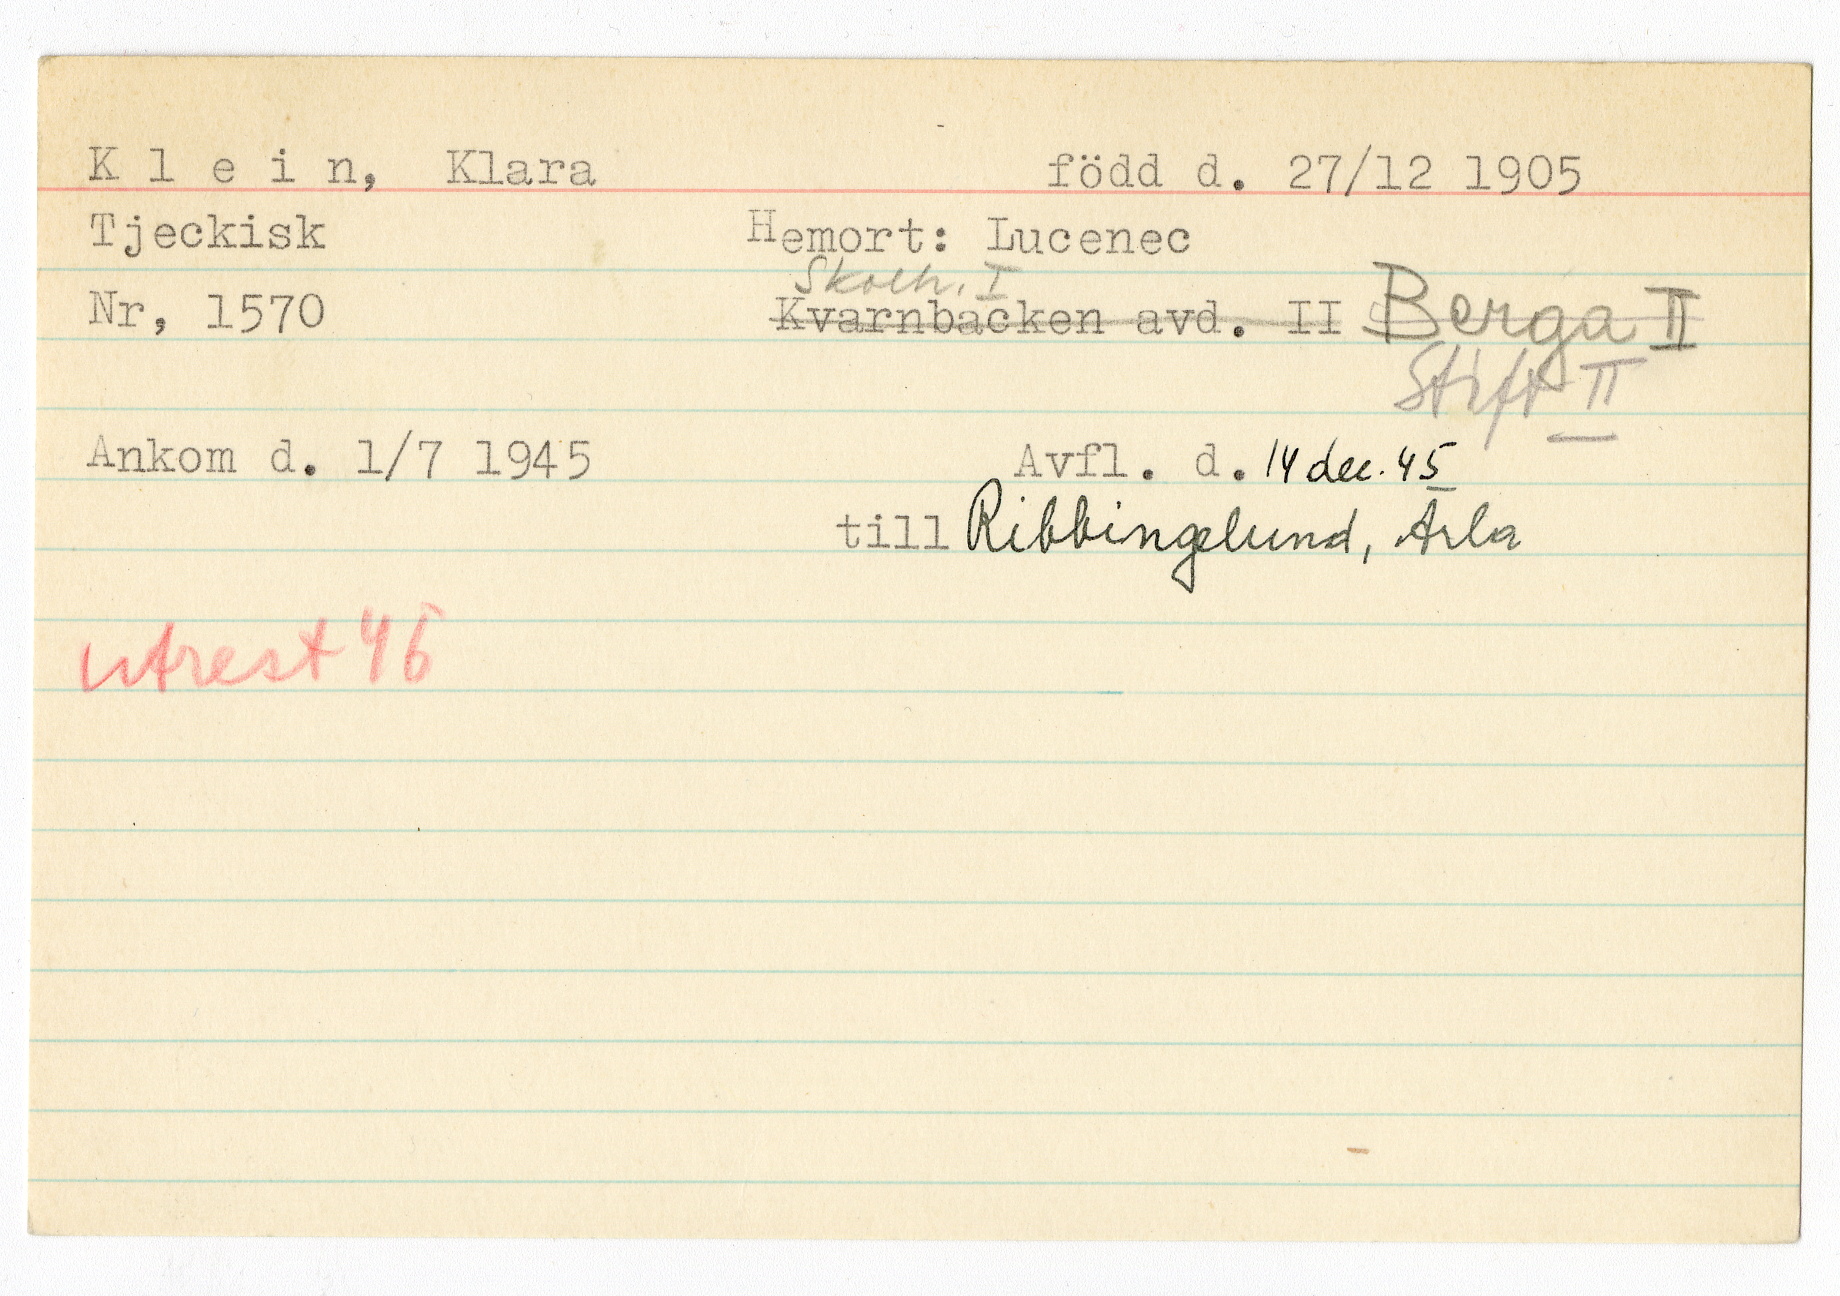 K l e i n, Klara född d. 27/12 1905
Tjeckisk Hemort: Lucenec
Skolh. I
Nr, 1570 Kvarnbacken avd. II Berga II
Stift II
Ankom d. 1/7 1945 Avfl. d. 14 dec. 45
till Ribbingelund, Ärla
utrest 46